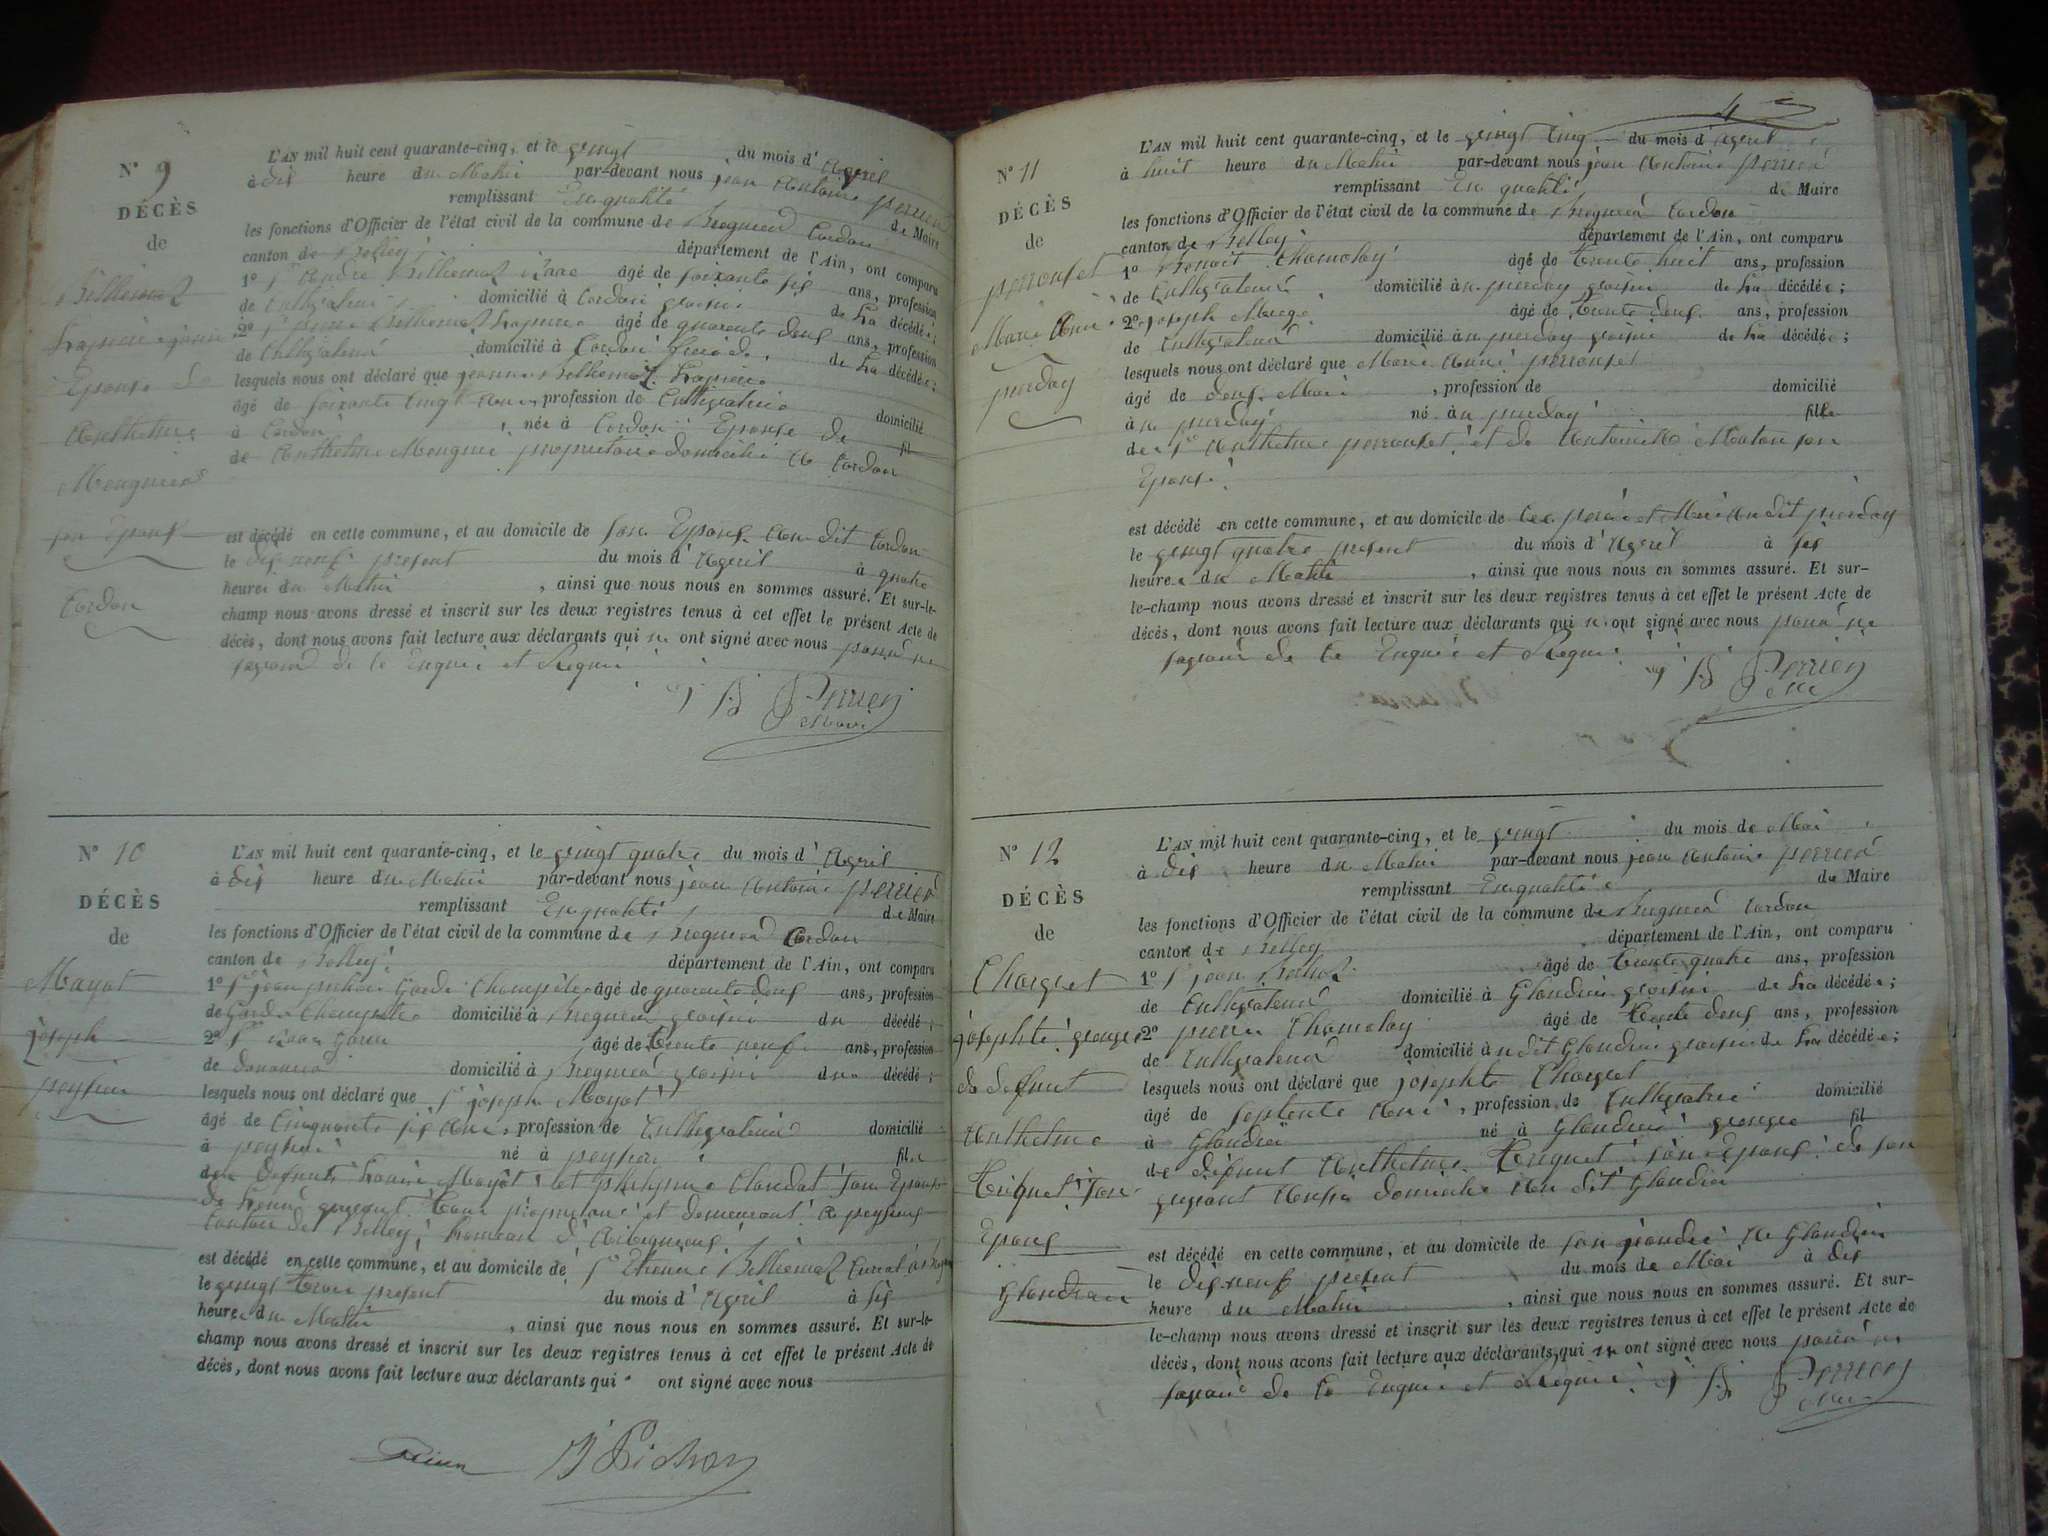 N° 9
DÉCÈS
de
Billiemaz
Epouse de
Anthelme
son Epoux
Cordon
L'AN mil huit cent quarante-cinq, et le vingt du mois d' Avril
à dix heure du Matin par-devant nous jean Antoine perrier
remplissant En qualité de Maire
les fonctions d'Officier de l'état civil de la commune de Bregnier Cordon
canton de Belley département de l'Ain, ont comparu
1° Sr Andre Billiemaz âgé de soixante six ans, profession
de Cultivateur domicilié à Cordon voisin de La décédée;
2° Sr pierre Billiemaz âgé de quarante deux ans, profession
de Cultivateur domicilié à Cordon de La décédée;
lesquels nous ont déclaré que jeanne Billiemaz
âgé de soixante Cinq Ans, profession de Cultivatrice domicilié
à Cordon, née à Cordon Epouse de fil
de Anthelme propriétaire domicilié à Cordon
est décédé en cette commune, et au domicile de son Epoux Au dit Cordon
le dix neuf présent du mois d' Avril à quatre
heures du Matin, ainsi que nous nous en sommes assuré. Et sur-le-
champ nous avons dressé et inscrit sur les deux registres tenus à cet effet le présent Acte de
décès, dont nous avons fait lecture aux déclarants qui n' ont signé avec nous pour ne
savoir de ce Enquis et Requis
Perrier
Maire
N° 10
DÉCÈS
de
Mayot
joseph
peyrieu
L'AN mil huit cent quarante-cinq, et le vingt quatre du mois d' Avril
à dix heure du Matin par-devant nous jean Antoine perrier
remplissant En qualité de Maire
les fonctions d'Officier de l'état civil de la commune de Bregnier Cordon
canton de Belley département de l'Ain, ont comparu
1° Sr jean pichon Garde Champêtre âgé de quarante deux ans, profession
de Garde Champêtre domicilié à Bregnier voisin du décédé;
2° Sr âgé de trente neuf ans, profession
de domicilié à Bregnier voisin du décédé;
lesquels nous ont déclaré que Sr joseph Mayot
âgé de Cinquante six Ans, profession de Cultivateur domicilié
à peyrieu né à peyrieu fils
de Defunt Mayot et philipine Clandat son Epouse
propriétaire et demeurant à peyrieu
Canton de Belley, hameau d'
est décédé en cette commune, et au domicile de Sr Etienne Billiemaz
le vingt trois présent du mois d' Avril à six
heures du Matin, ainsi que nous nous en sommes assuré. Et sur-le-
champ nous avons dressé et inscrit sur les deux registres tenus à cet effet le présent Acte de
décès, dont nous avons fait lecture aux déclarants qui ont signé avec nous
J Pichon
4
N° 11
DÉCÈS
de
perrouset
Marie Anne
purday
L'AN mil huit cent quarante-cinq, et le vingt Cinq du mois d' Avril
à huit heure du Matin par-devant nous jean Antoine perrier
remplissant En qualité de Maire
les fonctions d'Officier de l'état civil de la commune de Bregnier Cordon
canton de Belley département de l'Ain, ont comparu
1° Benoit Chamolay âgé de trente huit ans, profession
de Cultivateur domicilié à purday voisin de La décédée;
2° joseph âgé de trente deux ans, profession
de Cultivateur domicilié à purday voisin de La décédée;
lesquels nous ont déclaré que Marie Anne perrouset
âgé de deux Mois, profession de domicilié
à purday né à purday fille
de Sr Anthelme perrouset et de Antoinette son
Epouse
est décédé en cette commune, et au domicile de ses père et Mère Au dit purday
le vingt quatre présent du mois d' Avril à six
heures du Matin, ainsi que nous nous en sommes assuré. Et sur-
le-champ nous avons dressé et inscrit sur les deux registres tenus à cet effet le présent Acte de
décès, dont nous avons fait lecture aux déclarants qui n' ont signé avec nous pour ne
savoir de ce Enquis et Requis
Perrier
N° 12
DÉCÈS
de
Charvet
josephte
de defunt
Anthelme
son
Epoux
Glandieu
L'AN mil huit cent quarante-cinq, et le vingt du mois de Mai
à dix heure du Matin par-devant nous jean Antoine perrier
remplissant En qualité de Maire
les fonctions d'Officier de l'état civil de la commune de Bregnier Cordon
canton de Belley département de l'Ain, ont comparu
1° Sr jean âgé de trente quatre ans, profession
de Cultivateur domicilié à Glandieu voisin de La décédée;
2° pierre Chamolay âgé de trente deux ans, profession
de Cultivateur domicilié au dit Glandieu voisin de La décédée;
lesquels nous ont déclaré que josephte Charvet
âgé de septente Ans, profession de Cultivatrice domicilié
à Glandieu né à Glandieu fil
de défunt Anthelme son Epoux de son
vivant domicilié Au dit Glandieu
est décédé en cette commune, et au domicile de son à Glandieu
le dix neuf présent du mois de Mai à dix
heure du Matin, ainsi que nous nous en sommes assuré. Et sur-
le-champ nous avons dressé et inscrit sur les deux registres tenus à cet effet le présent Acte de
décès, dont nous avons fait lecture aux déclarants qui n' ont signé avec nous pour ne
savoir de ce Enquis et Requis Perrier